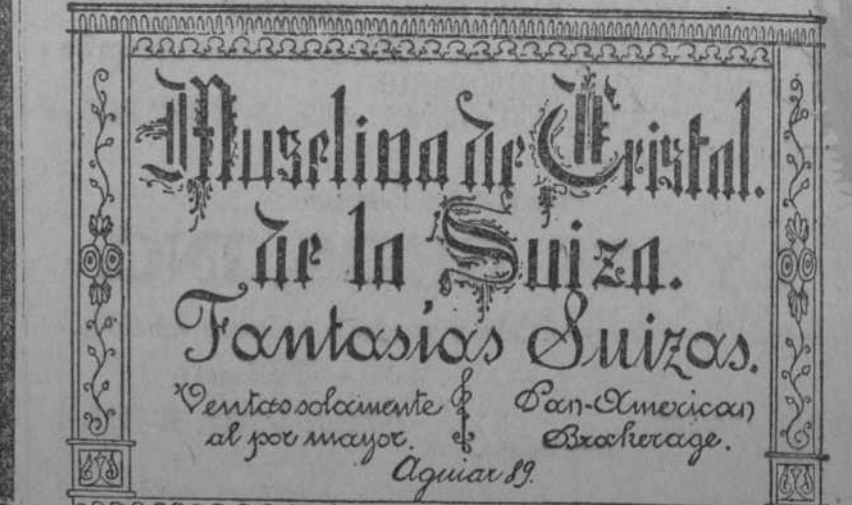 Muselina de Cristal.
de la Suiza.
Fantasías Suizas.
Ventas solamente
al por mayor.
Pan-American
Brokerage.
Aguiar 89.